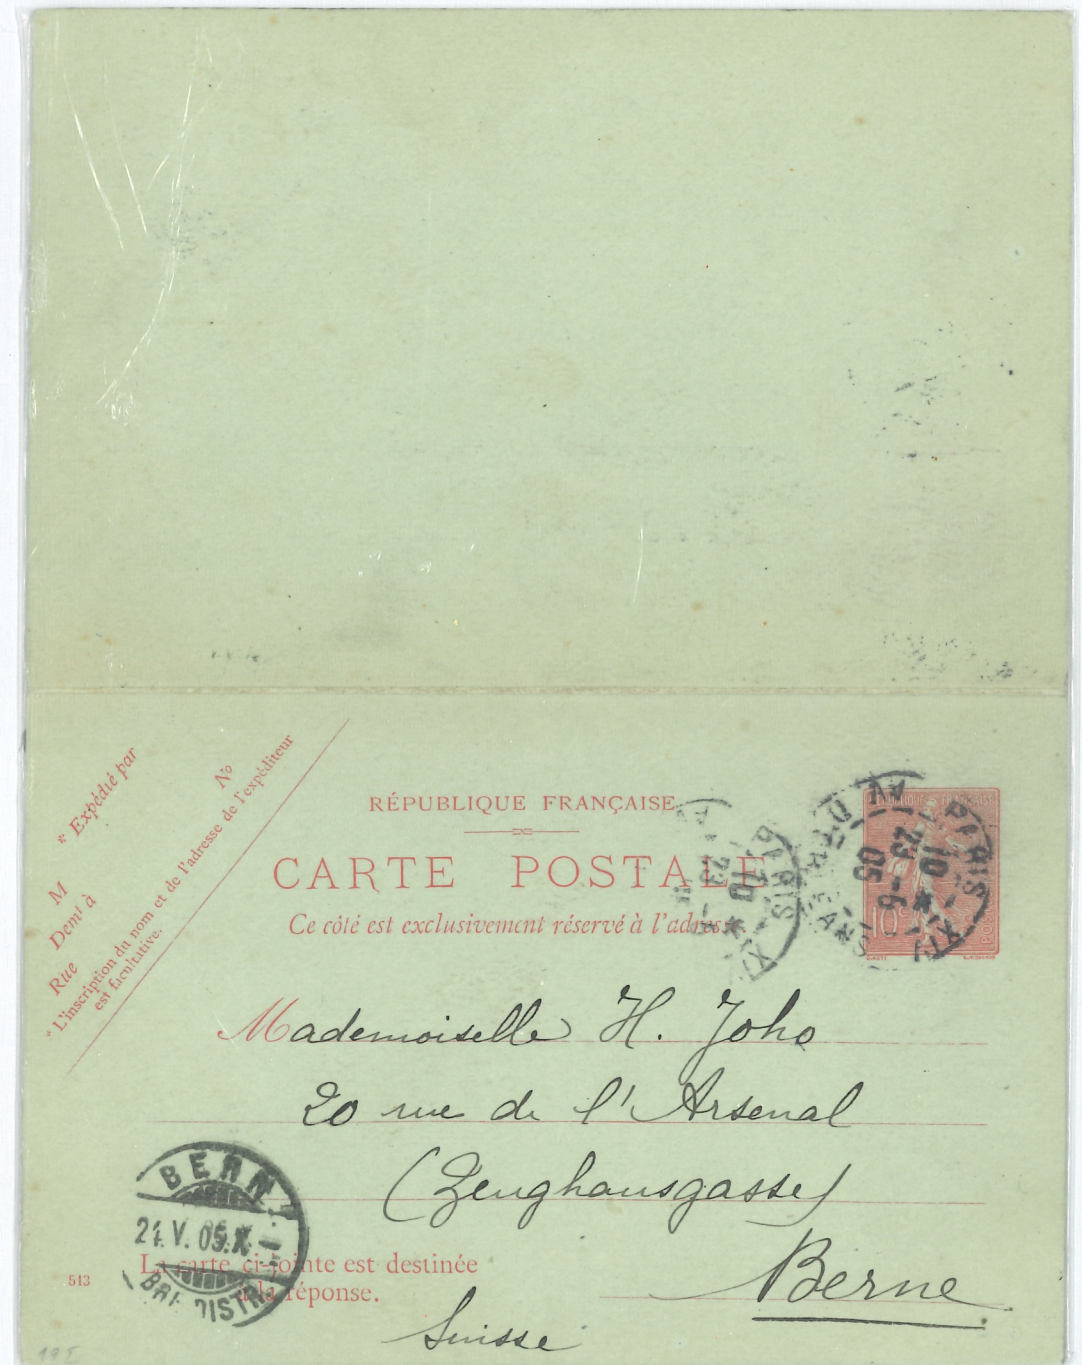 * Expédié par
M
Demt à
Rue No
* L'inscription du nom et de l'adresse de l'expéditeur
est facultative.
RÉPUBLIQUE FRANÇAISE
CARTE POSTALE
Ce côté est exclusivement réservé à l'adresse
10 c
PARIS XIV
10 *
23 -6
05
AV. D'ORLEANS
PARIS XI
10 *
23
Mademoiselle H. Joho
20 rue de l'Arsenal
(Zeughausgasse)
Berne
Suisse
BERN 1
24. V. 05. X
La carte ci-jointe est destinée
à la réponse.
513